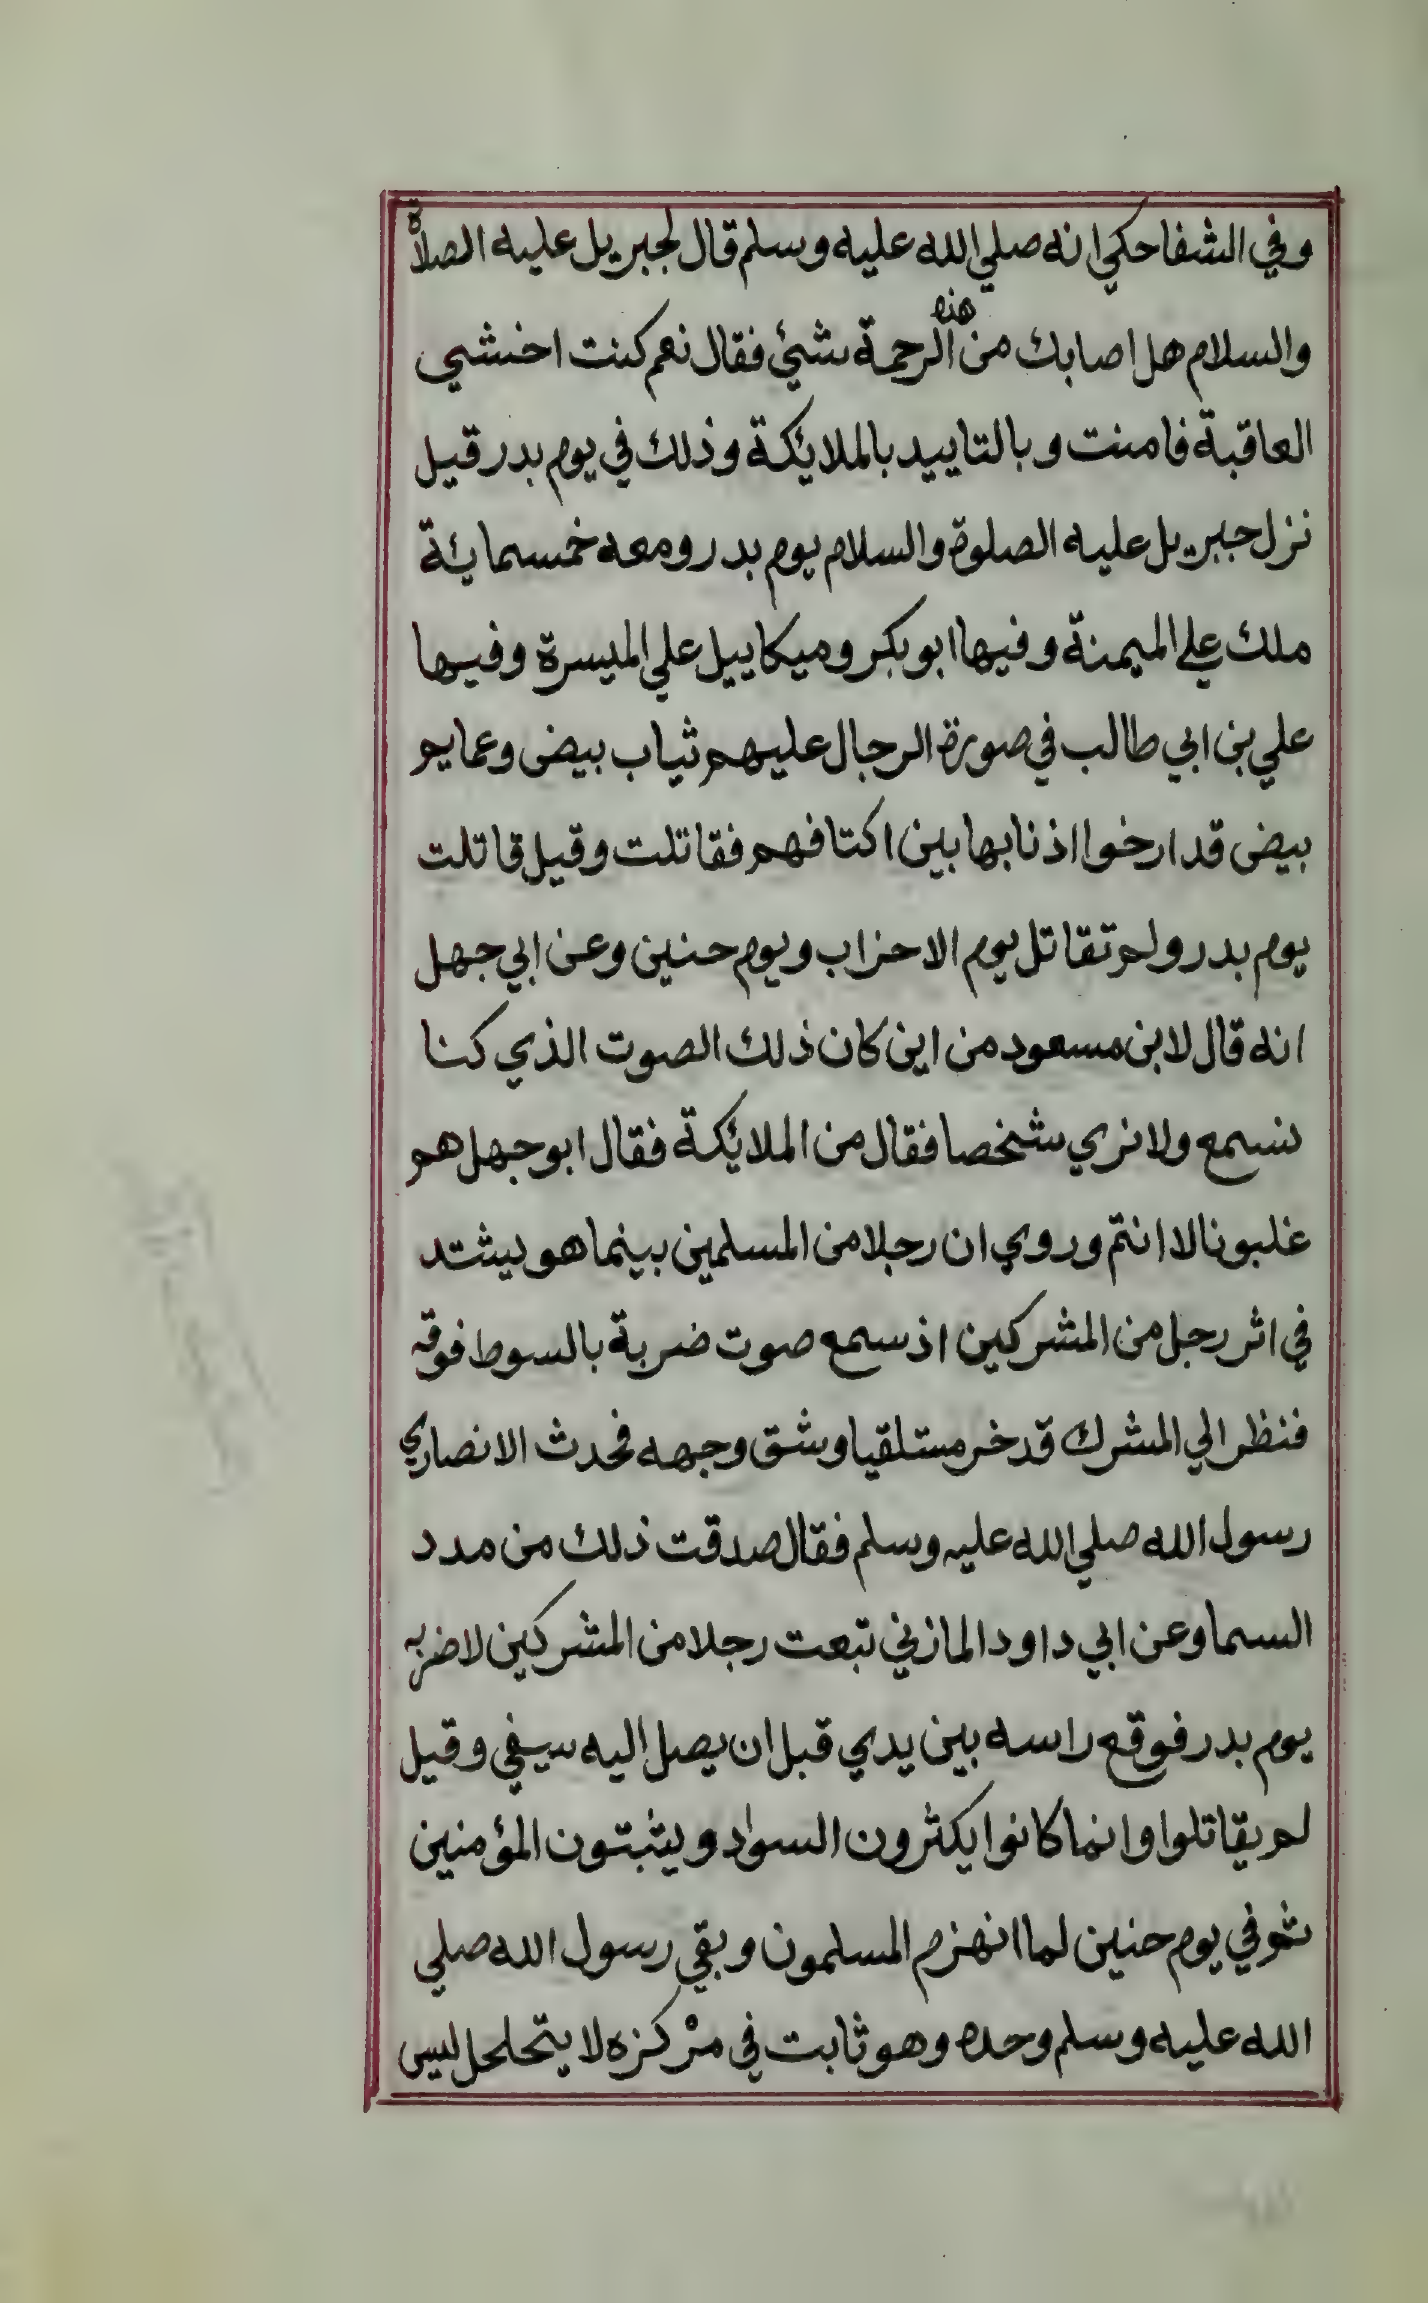 وفي الشفا حكي انه صلي الله عليه وسلم قال لجبريل عليه الصلاة
والسلام هل اصابك من هذه الرحمة شيئ فقال نعم كنت اخشي
العاقبة فامنت وبالتاييد بالملائكة وذلك في يوم بدر قيل
نزل جبريل عليه الصلوة والسلام يوم بدر ومعه خمسمائة
ملك علي الميمنة وفيها ابو بكر وميكاييل علي الميسرة وفيها
علي بن ابي طالب في صورة الرجال عليهم ثياب بيض وعمايم
بيض قد ارخوا اذنابها بين اكتافهم فقاتلت وقيل قاتلت
يوم بدر ولم تقاتل يوم الاحزاب ويوم حنين وعن ابي جهل
انه قال لابن مسعود من اين كان ذلك الصوت الذي كنا
نسمع ولا نري شخصا فقال من الملائكة فقال ابو جهل هم
غلبونا لا انتم وروي ان رجلا من المسلمين بينما هو يشتد
في اثر رجل من المشركين اذ سمع صوت ضربة بالسوط فوقه
فنظر الي المشرك قد خر مستلقيا وشق وجهه فحدث الانصاري
رسول الله صلي الله عليه وسلم فقال صدقت ذلك من مدد
السما وعن ابي داود المازني تبعت رجلا من المشركين لاضربه
يوم بدر فوقع راسه بين يدي قبل ان يصل اليه سيفي وقيل
لم يقاتلوا وانما كانوا يكثرون السواد ويثبتون المؤمنين
ثم في يوم حنين لما انهزم المسلمون وبقي رسول الله صلي
الله عليه وسلم وحده وهو ثابت في مركزه لا يتحلحل ليس